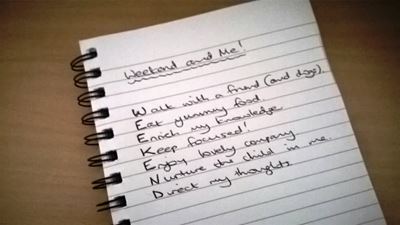 Weekend and Me!
Walk with a friend (and dogs).
Eat yummy food.
Enrich my knowledge
Keep focused!
Enjoy lovely company.
Nurture the child in me.
Direct my thoughts.